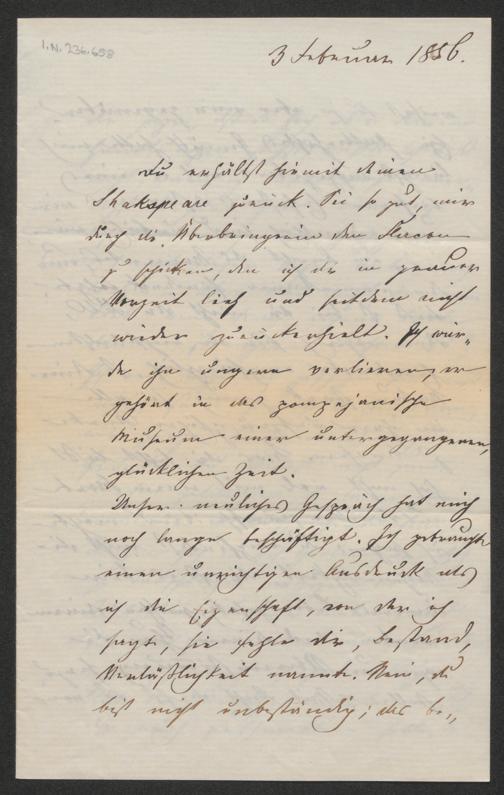 I.N. 236.658
3 Februar 1886.
Du erhältst hiemit deinen
Shakspeare zurück. Sei so gut, mir
durch die Überbringerin den Flacon
zu schicken, den ich dir in grauer
Vorzeit lieh und seitdem nicht
wieder zurückerhielt. Ich wür„
de ihn ungern verlieren, er
gehört in das pompejanische
Museum einer untergegangenen,
glücklichen Zeit.
Unser neuliches Gespräch hat mich
noch lange beschäftigt. Ich gebrauchte
einen unrichtigen Ausdruck als
ich die Eigenschaft, von der ich
sagte, sie fehle dir, Bestand,
Verläßlichkeit nannte. Nein, du
bist nicht unbeständig; das be„